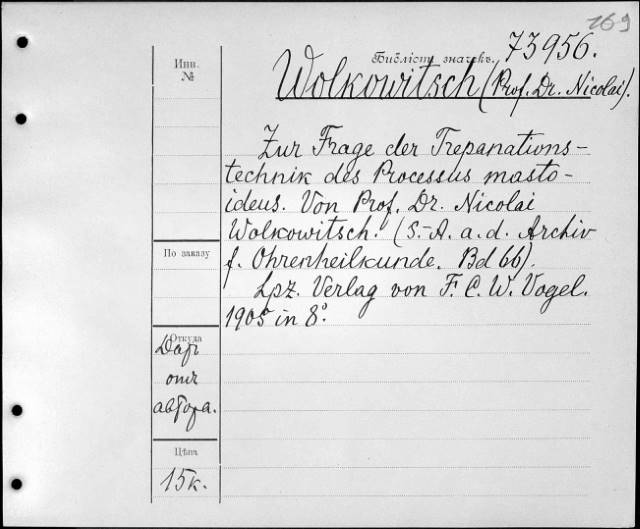 169
Инв.
№
Библіотч значекъ. 73956.
Wolkowitsch (Prof. Dr. Nicolai).
Zur Frage der Trepanations-
technik des Processus masto-
ideus. Von Prof. Dr. Nicolai
Wolkowitsch. (S.-A. a. d. Archiv
f. Ohrenheilkunde. Bd 66).
Lpz. Verlag von F. C. W. Vogel.
1905 in 8°.
По заказу
Откуда
Дар
от
автора.
Цѣна
15к.